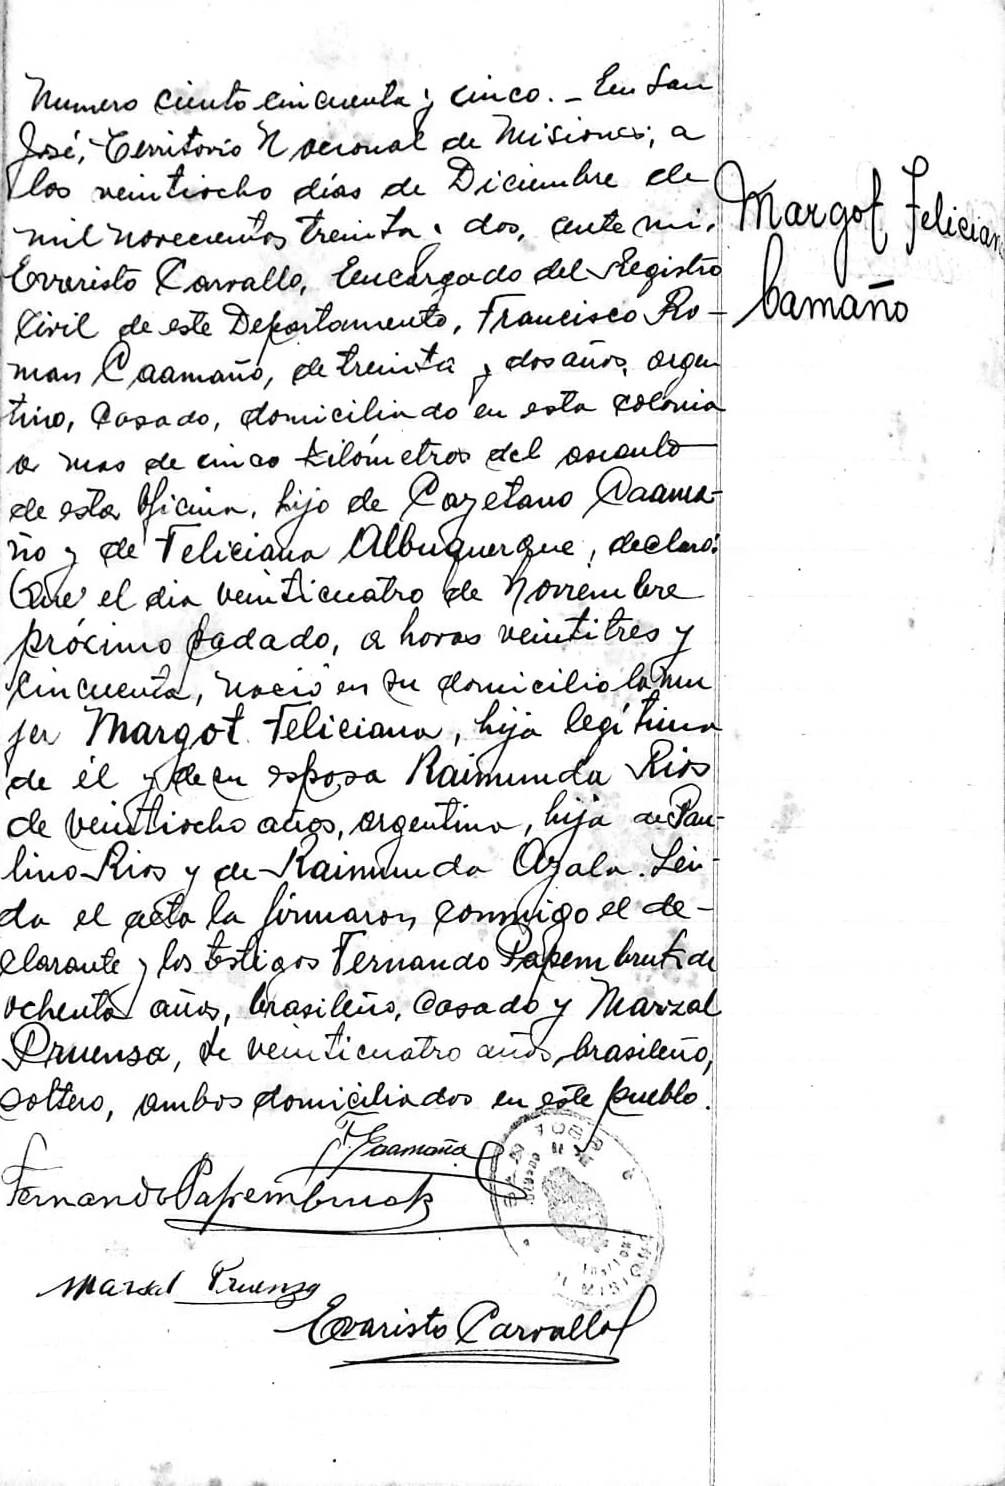 Numero ciento cincuenta y cinco. _ En San
José, Territorio Nacional de Misiones, a
los veintiocho dias de Diciembre de
mil novecientos treinta y dos, ante mi,
Evaristo Carvallo, Encargado del Registro
Civil de este Departamento, Francisco Ro-
man Caamaño, de treinta y dos años, argen
tino, casado, domiciliado en esta colonia
a mas de cinco kilómetros del asiento
de esta oficina, hijo de Cayetano Caama-
ño y de Feliciana Albuquerque, declaró:
Que el dia veinticuatro de Noviembre
próximo padado, a horas veintitres y
cincuenta, nació en su domicilio la mu
jer Margot Feliciana, hija legítima
de él y de su esposa Raimunda Rios
de veintiocho años, argentina, hija de Pau-
lino Rios y de Raimunda Ayala. Lei-
da el acta la firmaron conmigo el de-
clarante y los testigos Fernando Papembruk de
ochenta años, brasileño, casado y Marzal
Pruensa, de veinticuatro años, brasileño,
soltero, ambos domiciliados en este pueblo.
Margot Felician
Camaño
F Caamaño
Fernando Papembruok
Marsal Pruenza
Evaristo Carvallo